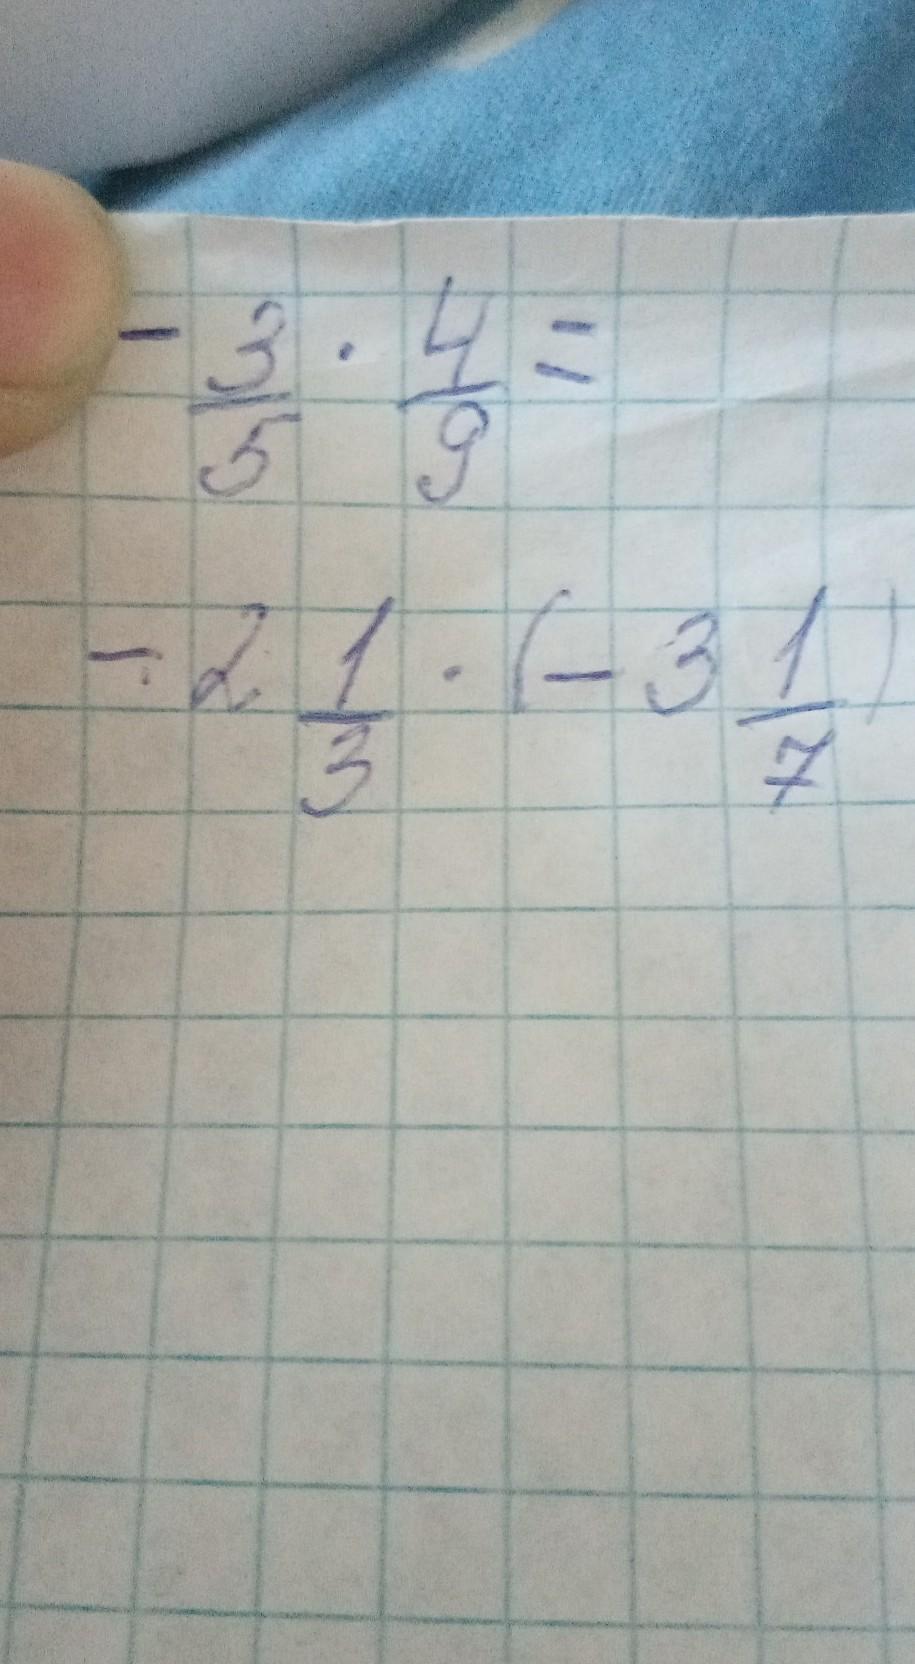 - 3/5 · 4/9 =
- 2 1/3 · (- 3 1/7)